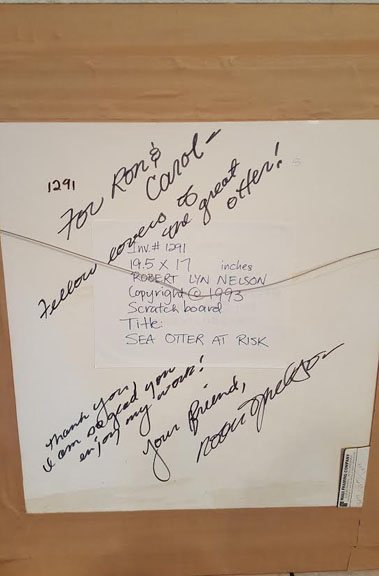 1291
For Ron &
Carol -
Fellow lovers of
the great
otter!
Inv.# 1291
19.5 X 17 inches
ROBERT LYN NELSON
Copyright © 1993
Scratch board
Title:
SEA OTTER AT RISK
Thank you,
I am so glad you
enjoy my work!
Your Friend,